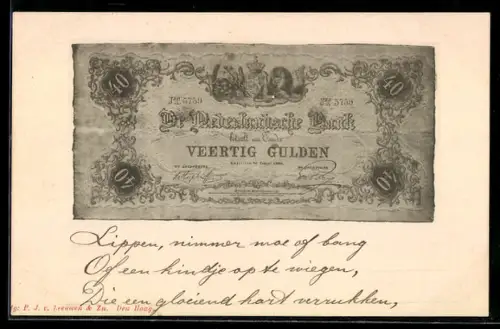 40 40
5739 5739
De Nederlandsche Bank
betaalt aan Toonder
VEERTIG GULDEN
40 40
Lippen, nimmer moe of bang
Of een kindje op te wiegen,
Die een gloeiend hart verrukken,
P. J. v. Leeuwen & Zn. Den Haag